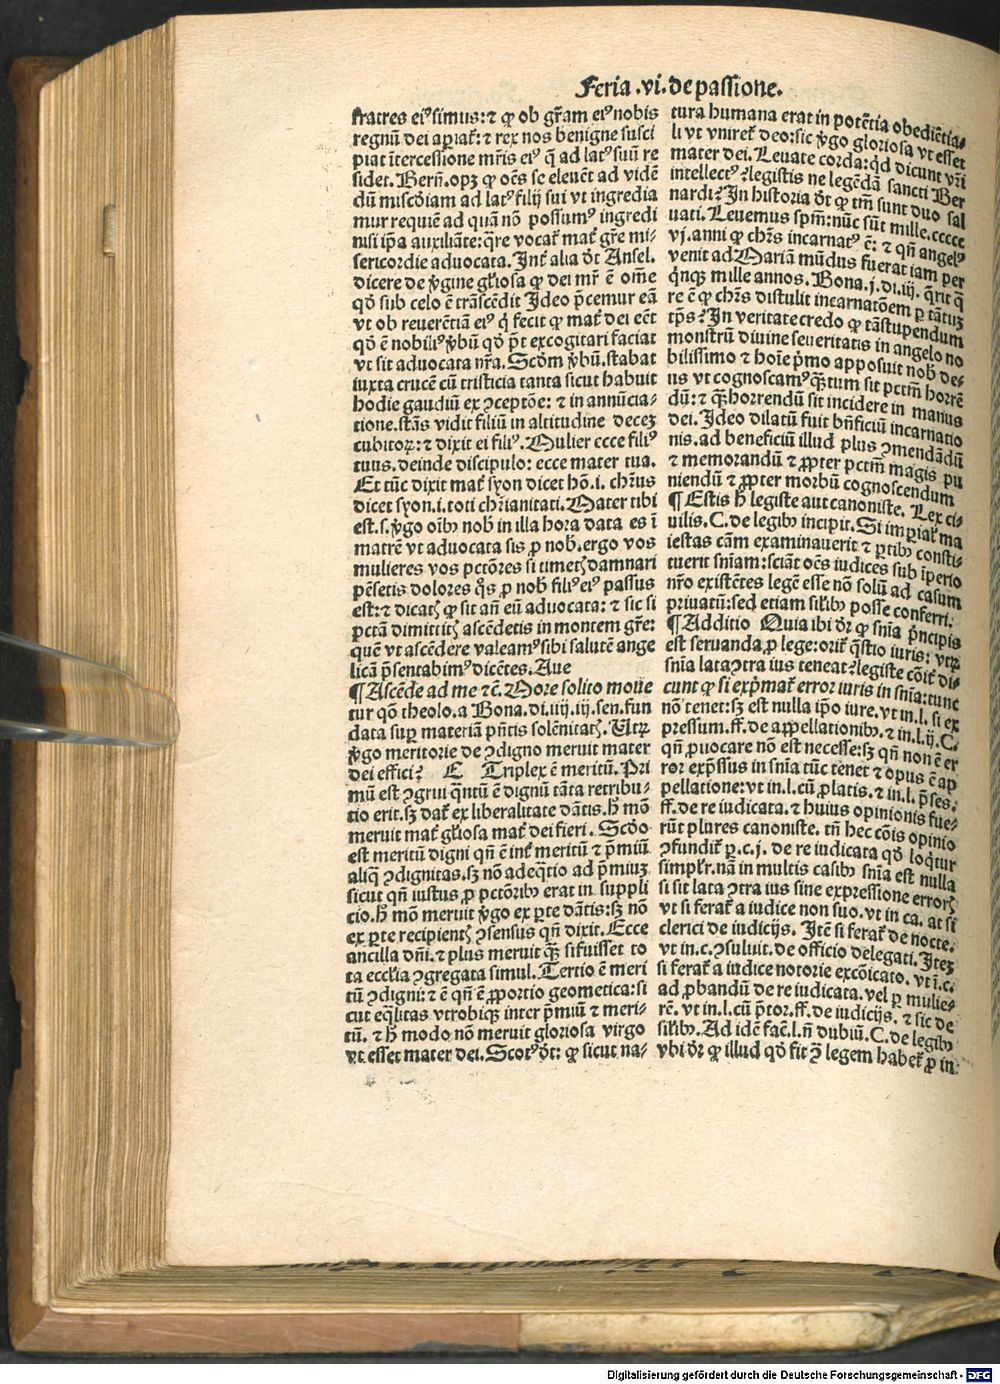 Feria .vi. de passione.
fratres eiꝰ simus: ⁊ ꝙ ob gr̃am eiꝰ nobis
regnũ dei apiat̃: ⁊ rex nos benigne susci
piat ĩtercessione mr̃is eiꝰ q̃ ad latꝰ suũ re
sidet. Bern̄. opꝫ ꝙ oẽs se eleuẽt ad vidẽ
dũ misc̃diam ad latꝰ filij sui vt ingredia
mur requiẽ ad quã nõ possumꝰ ingredi
nisi ip̃a auxiliãte: q̃re vocat̃ mat̃ gr̃e mi-
sericordie aduocata. Int̃ alia d̃t Ansel.
dicere de v̓gine gl̃iosa ꝙ dei mr̃ ẽ om̃e
qd̃ sub celo ẽ trãscẽdit Ideo p̃cemur eã
vt ob reuerẽtiã eiꝰ q̓ fecit ꝙ mat̃ dei eẽt
qd̃ ẽ nobiliꝰ v̓bũ qd̃ p̃t excogitari faciat
vt sit aduocata nr̃a. Scd̃m v̓bũ. stabat
iuxta crucẽ cũ tristicia tanta sicut habuit
hodie gaudiũ ex ꝯceptõe: ⁊ in annũcia-
tione. stãs vidit filiũ in altitudine deceꝫ
cubitoꝝ: ⁊ dixit ei filiꝰ. Mulier ecce filiꝰ
tuus. deinde discipulo: ecce mater tua.
Et tũc dixit mat̃ syon dicet hõ. i. chr̃us
dicet syon. i. toti chr̃ianitati. Mater tibi
est. s. v̓go oĩbꝫ nob̃ in illa hora data es ĩ
matrẽ vt aduocata sis ꝓ nob̃. ergo vos
mulieres vos pctõres si timetꝭ damnari
pẽsetis dolores q̃s ꝓ nob̃ filiꝰ eiꝰ passus
est: ⁊ dicatꝭ ꝙ sit añ eũ aduocata: ⁊ sic si
pctã dimittitꝭ ascẽdetis in montem gr̃e:
quẽ vt ascẽdere valeamꝰ sibi salutẽ ange
licã p̃sentabimꝰ dicẽtes. Aue
¶ Ascẽde ad me ⁊c̃. More solito moue
tur qõ theolo. a Bona. di. iiij. iij. sen. fun
data suꝑ materiã p̃ntis solẽnitatꝭ. Utꝝ
v̓go meritorie de ꝯdigno meruit mater
dei effici? C Triplex ẽ meritũ. Pri
mũ est ꝯgrui q̃ntũ ẽ dignũ tãta retribu-
tio erit. sꝫ dat̃ ex liberalitate dãtis. h̃ mõ
meruit mat̃ gl̃iosa mat̃ dei fieri. Scd̃o
est meritũ digni qñ ẽ int̃ meritũ ⁊ p̃miũ
aliq̃ ꝯdignitas. sꝫ nõ adeq̃tio ad p̃miuꝫ
sicut qñ iustus ꝓ pctõribꝫ erat in suppli
cio. h̃ mõ meruit v̓go ex ꝑte dãtis: sꝫ nõ
ex ꝑte recipientꝭ ꝯsensus qñ dixit. Ecce
ancilla dñi. ⁊ plus meruit q̃ꝫ si fuisset to
ta eccl̃ia ꝯgregata simul. Tertio ẽ meri
tũ ꝯdigni: ⁊ ẽ qñ ẽ ꝓportio geometica: si
cut eq̃litas vtrobiqꝫ inter p̃miũ ⁊ meri-
tũ. ⁊ h̃ modo nõ meruit gloriosa virgo
vt esset mater dei. Scotꝰ d̃t: ꝙ sicut na-
tura humana erat in potẽtia obediẽtia-
li vt vniret̃ deo: sic v̓go gloriosa vt esset
mater dei. Leuate corda: qd̃ dicunt vr̃i
intellectꝰ? legistis ne legẽdã sancti Ber
nardi? In historia d̃t ꝙ tm̃ sunt duo sal
uati. Leuemus sp̃m: nũc sũt mille. ccccc
vj. anni ꝙ chr̃s incarnatꝰ ẽ: ⁊ qñ angelꝰ
venit ad Mariã mũdus fuerat iam per
q̃nqꝫ mille annos. Bona. j. di. iij. q̃rit q̃
re ẽ ꝙ chr̃s distulit incarnatõem ꝑ tãtuꝫ
tp̃s? In veritate credo ꝙ tã stupendum
monstrũ diuine seueritatis in angelo no
bilissimo ⁊ hoĩe p̃mo apposuit nob̃ de-
us vt cognoscamꝰ q̃ꝫtum sit pctm̃ horrẽ
dũ: ⁊ q̃ꝫ horrendũ sit incidere in manus
dei. Ideo dilatũ fuit bñficiũ incarnatio
nis. ad beneficiũ illud plus ꝯmendãdũ
⁊ memorandũ ⁊ ꝓpter pctm̃ magis pu
niendũ ⁊ ꝓpter morbũ cognoscendum
¶ Estis h̃ legiste aut canoniste. Lex ci-
uilis. C. de legibꝫ incipit. Si imꝑiat̃ ma
iestas cãm examinauerit ⁊ ꝑtibꝫ consti-
tuerit sñiam: sciãt oẽs iudices sub ĩperio
nr̃o existẽtes legẽ esse nõ solũ ad casum
priuatũ: sed etiam sil̃ibꝫ posse conferri.
¶ Additio Quia ibi d̃r ꝙ sñia p̃ncipis
est seruanda ꝓ lege: orit̃ q̃stio iuris: vtꝝ
sñia lata ꝯtra ius teneat? legiste cõit̃ di-
cunt ꝙ si exp̃mat̃ error iuris in sñia: tunc
nõ tenet: sꝫ est nulla ip̃o iure. vt in. l. si ex
pressum. ff. de appellationibꝫ. ⁊ in. l. ij. C.
qñ ꝓuocare nõ est necesse: sꝫ qñ non ẽ er
ror exp̃ssus in sñia tũc tenet ⁊ opus ẽ ap
pellatione: vt in. l. cũ ꝓlatis. ⁊ in. l. p̃ses.
ff. de re iudicata. ⁊ huius opinionis fue-
rũt plures canoniste. tñ hec cõis opinio
ꝯfundit̃ ꝑ. c. j. de re iudicata qd̃ loq̃tur
simpl̃r. nã in multis casibꝫ sñia est nulla
si sit lata ꝯtra ius sine expressione errorꝭ
vt si ferat̃ a iudice non suo. vt in ca. at si
clerici de iudicijs. Itẽ si ferat̃ de nocte.
vt in. c. ꝯsuluit. de officio delegati. Iteꝫ
si ferat̃ a iudice notorie excõicato. vt ĩ. c.
ad ꝓbandũ de re iudicata. vel ꝑ mulie-
rẽ. vt in. l. cũ p̃tor. ff. de iudicijs. ⁊ sic de
sil̃ibꝫ. Ad idẽ fac̃. l. ñ dubiũ. C. de legibꝫ
vbi d̃r ꝙ illud qd̃ fit ꝯ̃ legem habet̃ ꝓ in-
Digitalisierung gefördert durch die Deutsche Forschungsgemeinschaft - DFG